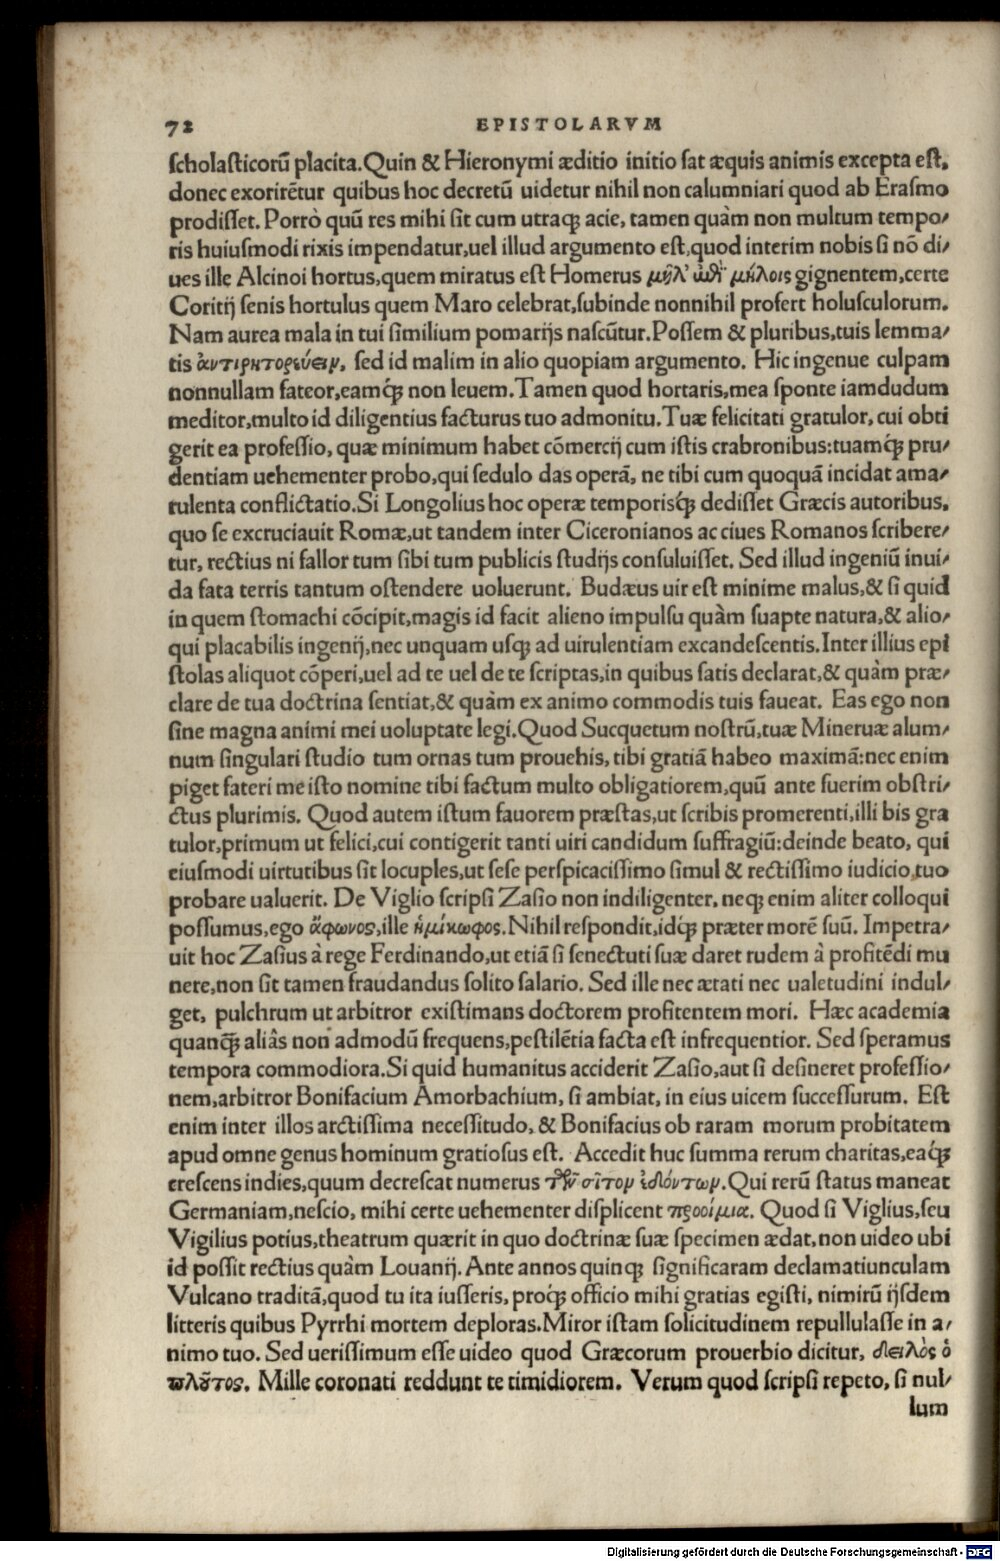 72 EPISTOLARVM
ſcholaſticorũ placita. Quin & Hieronymi æditio initio ſat æquis animis excepta eſt,
donec exorirẽtur quibus hoc decretũ uidetur nihil non calumniari quod ab Eraſmo
prodiſſet. Porrò quũ res mihi ſit cum utraqꝫ acie, tamen quàm non multum tempo⸗
ris huiuſmodi rixis impendatur, uel illud argumento eſt, quod interim nobis ſi nõ di⸗
ues ille Alcinoi hortus, quem miratus eſt Homerus μῆλ' ὠθὶ μήλοις gignentem, certe
Coritij ſenis hortulus quem Maro celebrat, ſubinde nonnihil profert holuſculorum.
Nam aurea mala in tui ſimilium pomarijs naſcũtur. Poſſem & pluribus, tuis lemma⸗
tis ἀντιρητορεύειν, ſed id malim in alio quopiam argumento. Hic ingenue culpam
nonnullam fateor, eamq́ꝫ non leuem. Tamen quod hortaris, mea ſponte iamdudum
meditor, multo id diligentius facturus tuo admonitu. Tuæ felicitati gratulor, cui obti
gerit ea profeſſio, quæ minimum habet cõmercij cum iſtis crabronibus: tuamq́ꝫ pru⸗
dentiam uehementer probo, qui ſedulo das operã, ne tibi cum quoquã incidat ama⸗
rulenta conflictatio. Si Longolius hoc operæ temporisq́ꝫ dediſſet Græcis autoribus,
quo ſe excruciauit Romæ, ut tandem inter Ciceronianos ac ciues Romanos ſcribere⸗
tur, rectius ni fallor tum ſibi tum publicis ſtudijs conſuluiſſet. Sed illud ingeniũ inui⸗
da fata terris tantum oſtendere uoluerunt. Budæus uir eſt minime malus, & ſi quid
in quem ſtomachi cõcipit, magis id facit alieno impulſu quàm ſuapte natura, & alio⸗
qui placabilis ingenij, nec unquam uſqꝫ ad uirulentiam excandeſcentis. Inter illius epi
ſtolas aliquot cõperi, uel ad te uel de te ſcriptas, in quibus ſatis declarat, & quàm præ⸗
clare de tua doctrina ſentiat, & quàm ex animo commodis tuis faueat. Eas ego non
ſine magna animi mei uoluptate legi. Quod Succquetum noſtrũ, tuæ Mineruæ alum⸗
num ſingulari ſtudio tum ornas tum prouehis, tibi gratiã habeo maximã: nec enim
piget fateri me iſto nomine tibi factum multo obligatiorem, quũ ante fuerim obſtri⸗
ctus plurimis. Quod autem iſtum fauorem præſtas, ut ſcribis promerenti, illi bis gra
tulor, primum ut felici, cui contigerit tanti uiri candidum ſuffragiũ: deinde beato, qui
eiuſmodi uirtutibus ſit locuples, ut ſeſe perſpicaciſſimo ſimul & rectiſſimo iudicio, tuo
probare ualuerit. De Viglio ſcripſi Zaſio non indiligenter, neqꝫ enim aliter colloqui
poſſumus, ego ἄφωνος, ille ἡμίκωφος. Nihil reſpondit, idq́ꝫ præter morẽ ſuũ. Impetra⸗
uit hoc Zaſius à rege Ferdinando, ut etiã ſi ſenectuti ſuæ daret rudem à profitẽdi mu
nere, non ſit tamen fraudandus ſolito ſalario. Sed ille nec ætati nec ualetudini indul⸗
get, pulchrum ut arbitror exiſtimans doctorem profitentem mori. Hæc academia
quanq̃ꝫ aliâs non admodũ frequens, peſtilẽtia facta eſt infrequentior. Sed ſperamus
tempora commodiora. Si quid humanitus acciderit Zaſio, aut ſi deſineret profeſſio⸗
nem, arbitror Bonifacium Amorbachium, ſi ambiat, in eius uicem ſucceſſurum. Eſt
enim inter illos arctiſſima neceſſitudo, & Bonifacius ob raram morum probitatem
apud omne genus hominum gratioſus eſt. Accedit huc ſumma rerum charitas, eaq́ꝫ
creſcens indies, quum decreſcat numerus τῶν σῖτον ἐδόντων. Qui rerũ ſtatus maneat
Germaniam, neſcio, mihi certe uehementer diſplicent προοίμια. Quod ſi Viglius, ſeu
Vigilius potius, theatrum quærit in quo doctrinæ ſuæ ſpecimen ædat, non uideo ubi
id poſſit rectius quàm Louanij. Ante annos quinqꝫ ſignificaram declamatiunculam
Vulcano traditã, quod tu ita iuſſeris, proq́ꝫ officio mihi gratias egiſti, nimirũ ijſdem
litteris quibus Pyrrhi mortem deploras. Miror iſtam ſolicitudinem repullulaſſe in a⸗
nimo tuo. Sed ueriſſimum eſſe uideo quod Græcorum prouerbio dicitur, δειλὸς ὁ
πλοῦτος. Mille coronati reddunt te timidiorem. Verum quod ſcripſi repeto, ſi nul⸗
lum
Digitalisierung gefördert durch die Deutsche Forschungsgemeinschaft - DFG